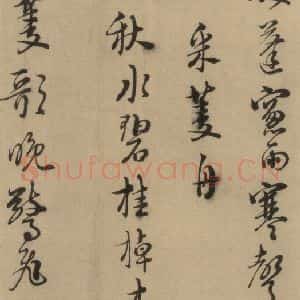 蓬窗雨寒聲
采菱舟
秋水碧桂棹
菱歌晚驚飛
Shufawang.CN